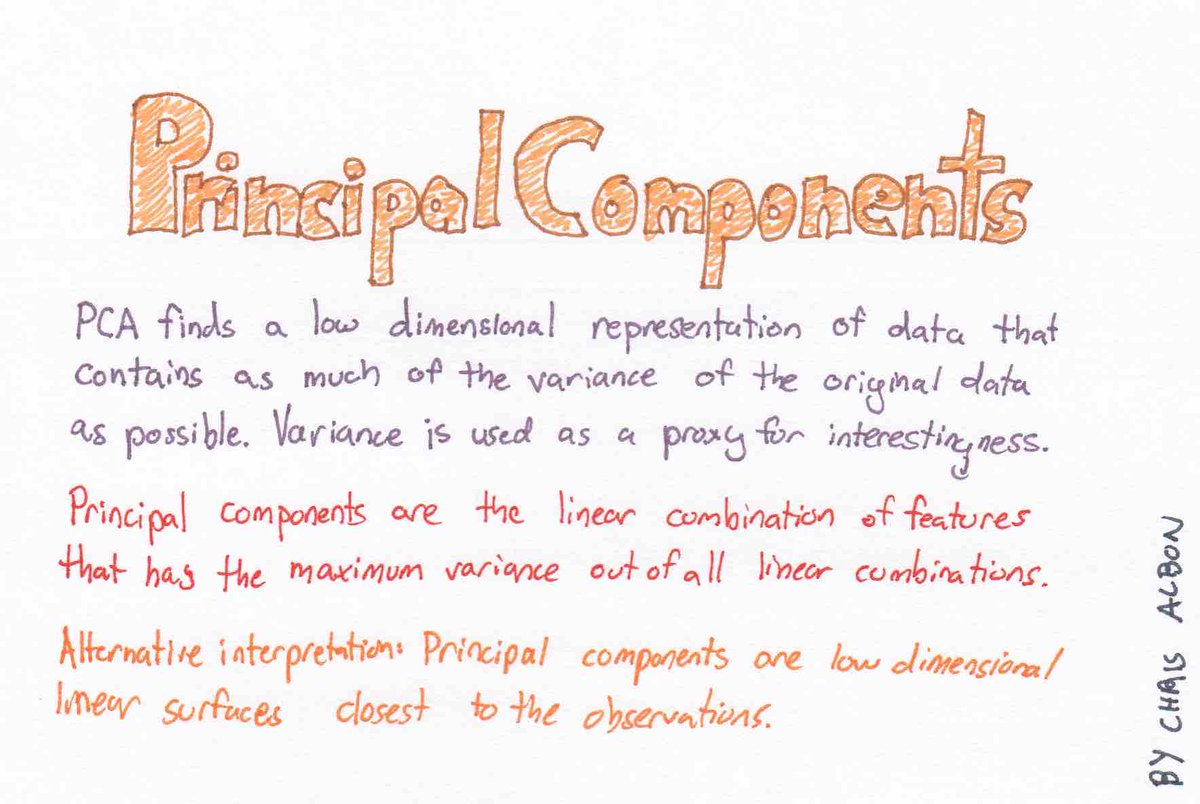 Principal Components
PCA finds a low dimensional representation of data that
contains as much of the variance of the original data
as possible. Variance is used as a proxy for interestingness.
Principal components are the linear combination of features
that has the maximum variance out of all linear combinations.
Alternative interpretation: Principal components are low dimensional
linear surfaces closest to the observations.
BY CHRIS ALBON